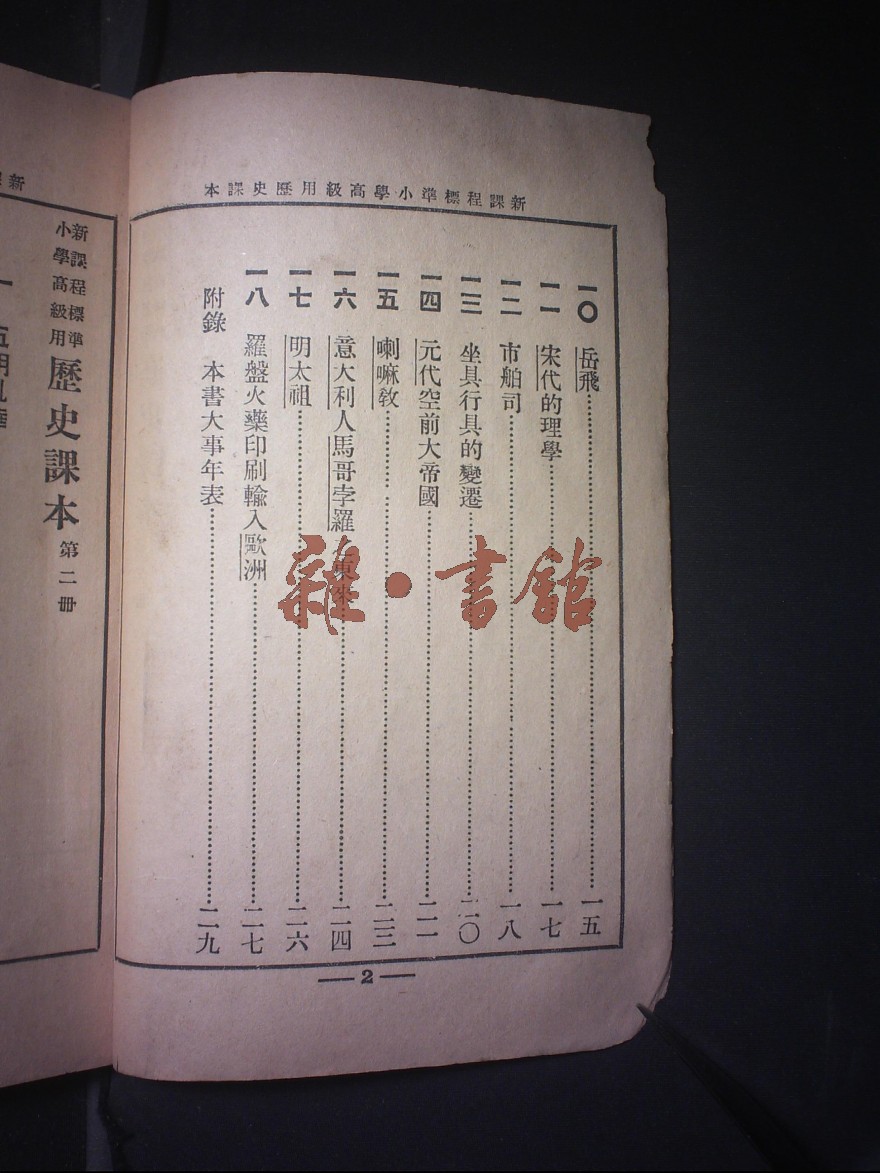 新課程標準小學高級用歷史課本
一〇 岳飛……一五
一一 宋代的理學……一七
一二 市舶司……一八
一三 坐具行具的變遷……二〇
一四 元代空前大帝國……二一
一五 喇嘛教……二三
一六 意大利人馬哥孛羅東來……二四
一七 明太祖……二六
一八 羅盤火藥印刷輸入歐洲……二七
附錄 本書大事年表……二九
—2—
新課程標準
小學高級用
歷史課本 第二冊
雜·書館